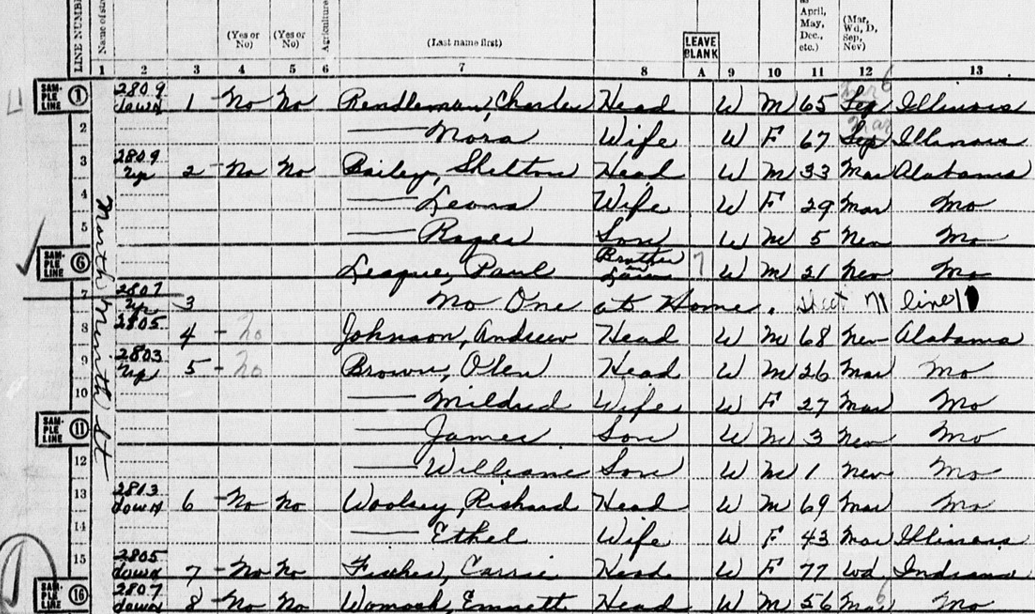 LINE NUMBER Name of street (Yes or No) (Yes or No) Agriculture (Last name first) LEAVE BLANK April, May, Dec., etc.) (Mar, Wd, D, Sep, Nev)
1 2 3 4 5 6 7 8 A 9 10 11 12 13
North Ninth St
SAMPLE LINE 1 2809 down 1 No No Rendleman, Charles Head W M 65 Sep 6 Illinois
2 — Nora Wife W F 67 Sep Mar Illinois
3 2809 up 2 No No Bailey, Shelton Head W M 33 Mar Alabama
4 — Leona Wife W F 29 Mar Mo
5 — Roger Son W M 5 Nev Mo
SAMPLE LINE 6 League, Paul Brother in Law 7 W M 21 Nev Mo
7 2807 up 3 No One at Home. Sheet 71 line
8 2805 4 - No Johnson, Andrew Head W M 68 Nev Alabama
9 2803 up 5 - No Brown, Olen Head W M 26 Mar Mo
10 — Mildred Wife W F 27 Mar Mo
SAMPLE LINE 11 — James Son W M 3 Nev Mo
12 — William Son W M 1 Nev Mo
13 2813 down 6 No No Woolsey, Richard Head W M 69 Mar Mo
14 — Ethel Wife W F 43 Mar Illinois
15 2805 down 7 No No Fisher, Carrie Head W F 77 Wd Indiana
SAMPLE LINE 16 2807 down 8 No No Womack, Emmett Head W M 56 Ma 6 Mo